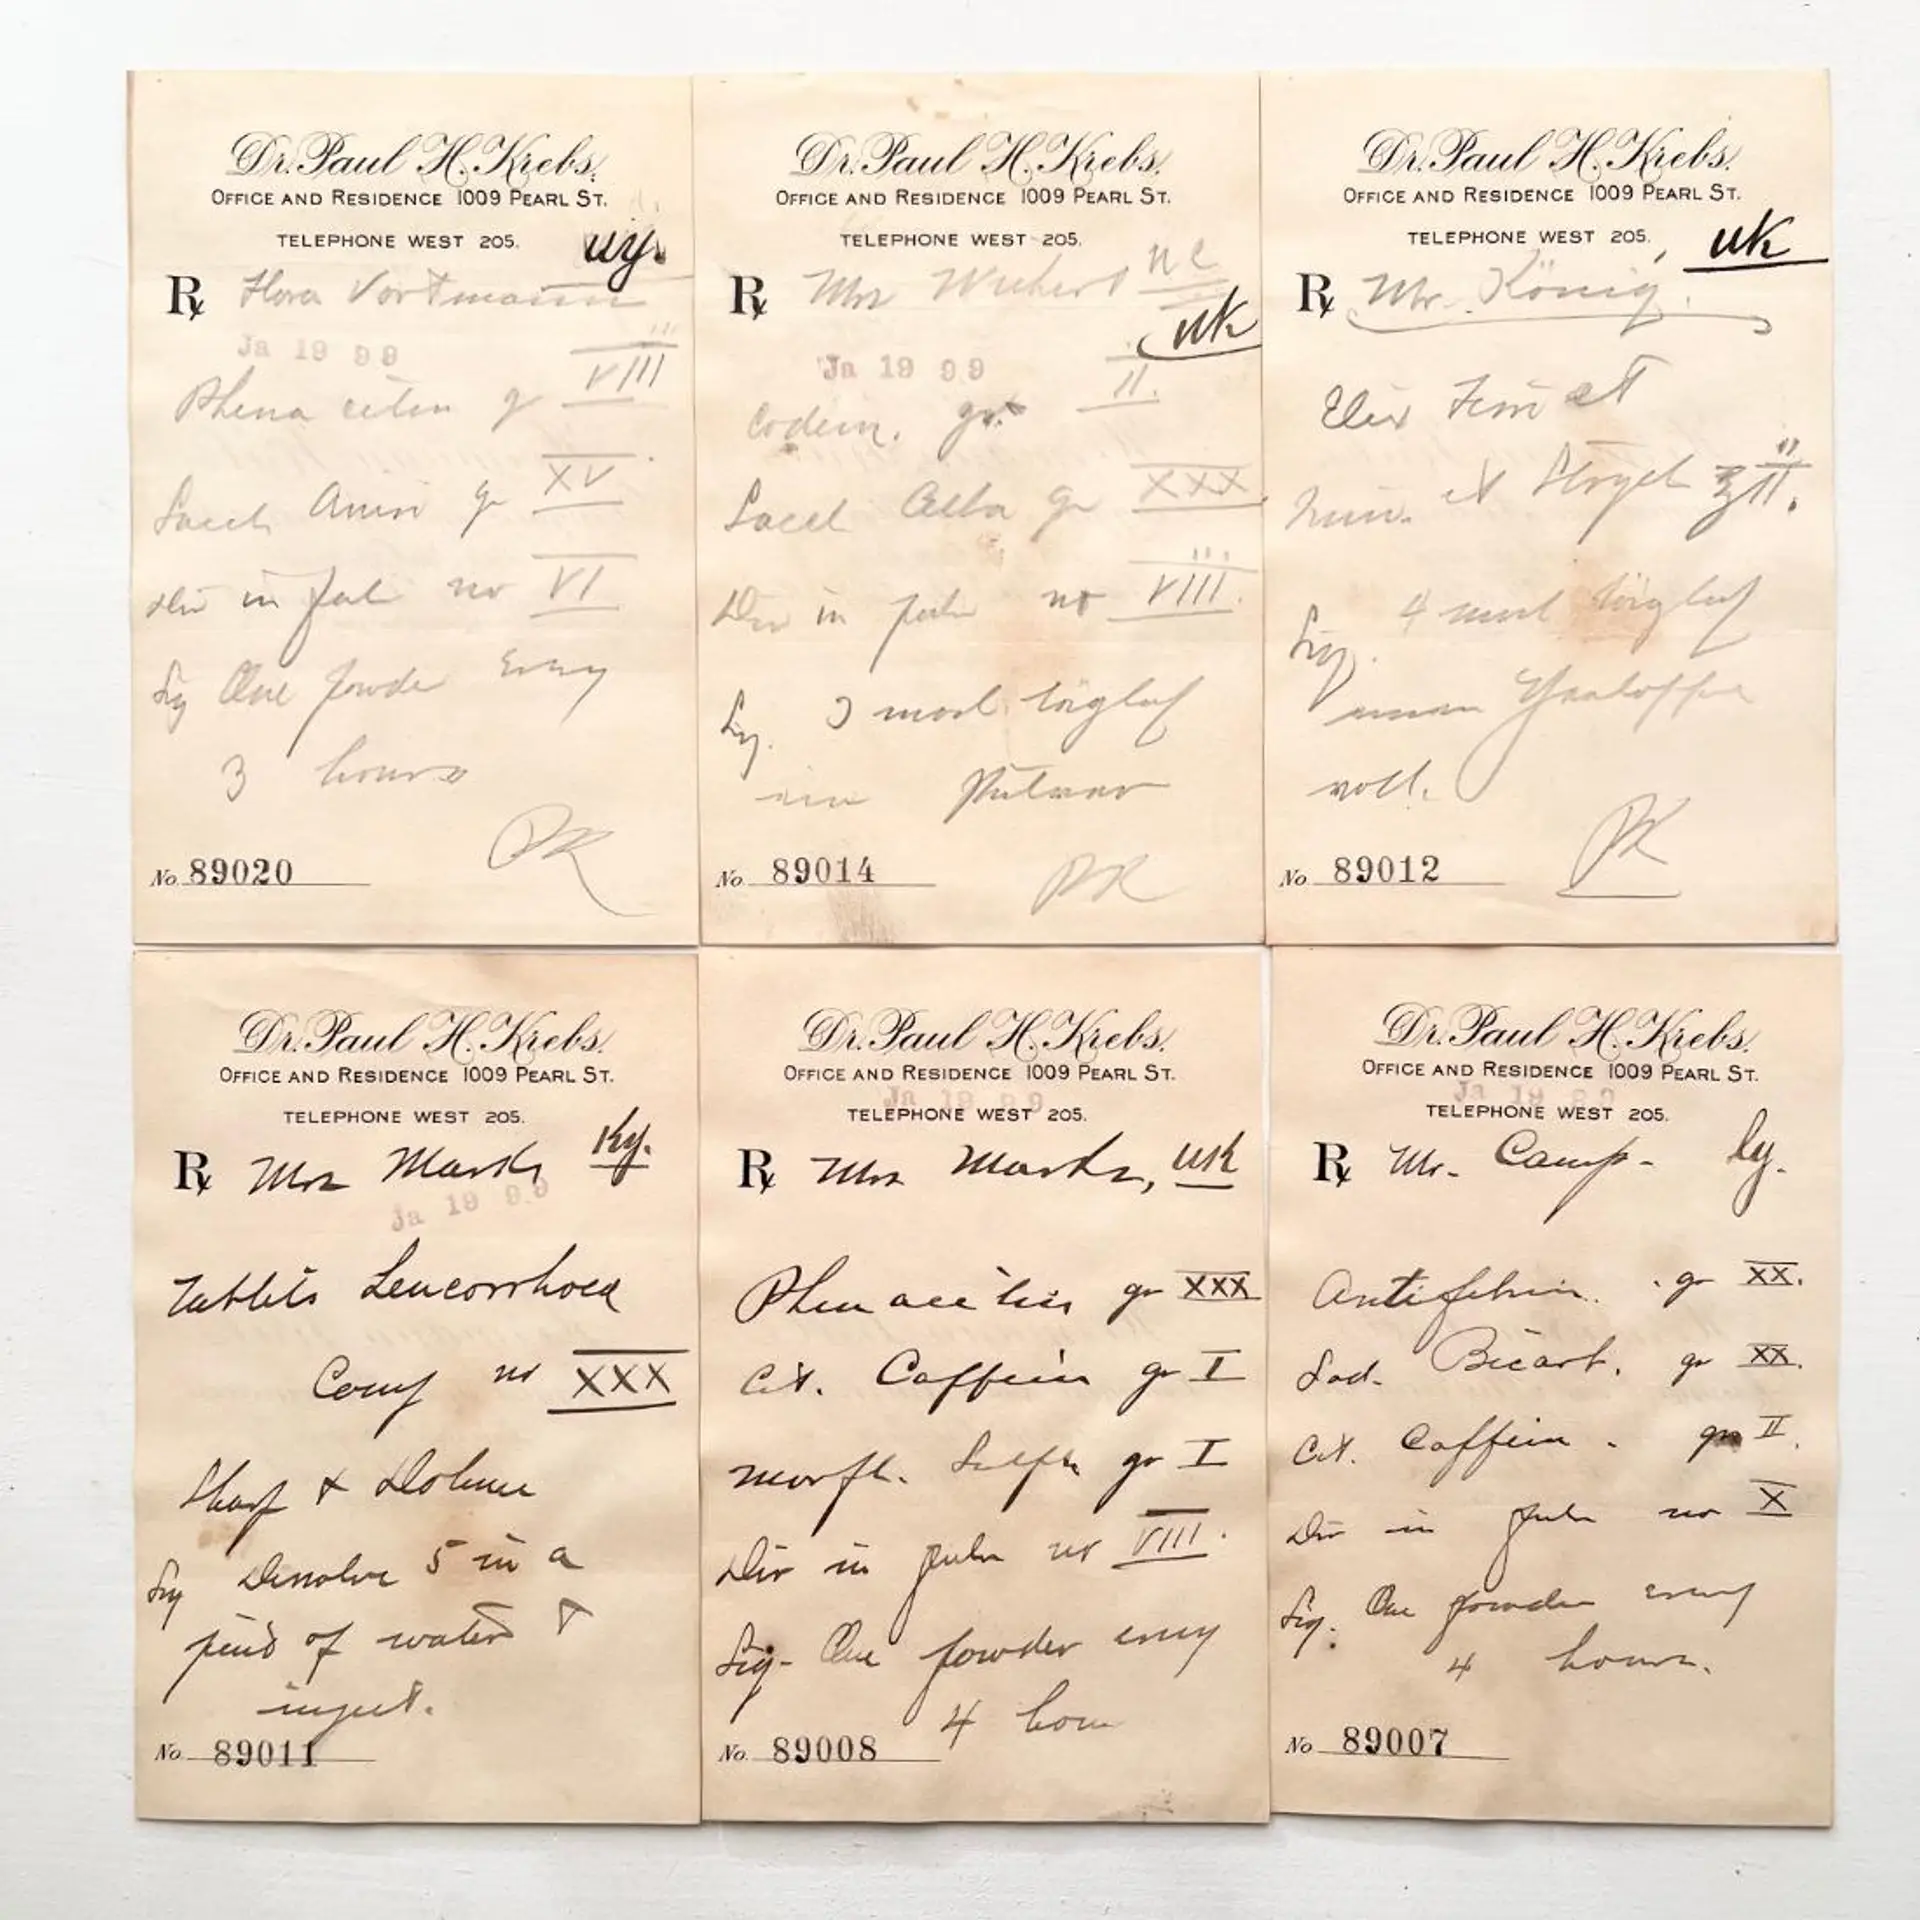 Dr. Paul H. Krebs.
OFFICE AND RESIDENCE 1009 PEARL ST.
TELEPHONE WEST 205.
Rx Flora Vortmann
Ja 19 99
VIII
Phenacetin gr
Sacch gr XV
Div in pulv no VI
Sig One powder every
3 hours
PK
No. 89020
Dr. Paul H. Krebs.
OFFICE AND RESIDENCE 1009 PEARL ST.
TELEPHONE WEST 205.
Rx Mrs
UK
Ja 19 99
Codein. gr. II.
Sacch Alba gr XXX
Div in pulv no VIII.
Sig. 3 mal täglich
ein Pulver
PK
No. 89014
Dr. Paul H. Krebs.
OFFICE AND RESIDENCE 1009 PEARL ST.
TELEPHONE WEST 205.
UK
Rx Mr. König.
Elix et
et Strych ℥ II.
Sig. 4 mal täglich
einen
voll.
PK
No. 89012
Dr. Paul H. Krebs.
OFFICE AND RESIDENCE 1009 PEARL ST.
TELEPHONE WEST 205.
Rx Mrs Marks Ky.
Ja 19 99
Tablets Leucorrhoea
Comp no XXX
Sharp & Dohme
Sig Dissolve 5 in a
pint of water &
inject.
No. 89011
Dr. Paul H. Krebs.
OFFICE AND RESIDENCE 1009 PEARL ST.
Ja 19 99
TELEPHONE WEST 205.
Rx Mrs Marks, UK
Phenacetin gr XXX
Cit. Caffein gr I
Morph. Sulph gr I
Div in pulv no VIII.
Sig- One powder every
4 hour
No. 89008
Dr. Paul H. Krebs.
OFFICE AND RESIDENCE 1009 PEARL ST.
Ja 19 99
TELEPHONE WEST 205.
Rx Mr. Camp- ly.
Antifebrin. gr XX.
Sod. Bicarb. gr XX.
Cit. Caffein. gr II.
Div in pulv no X
Sig. One powder every
4 hours.
No. 89007